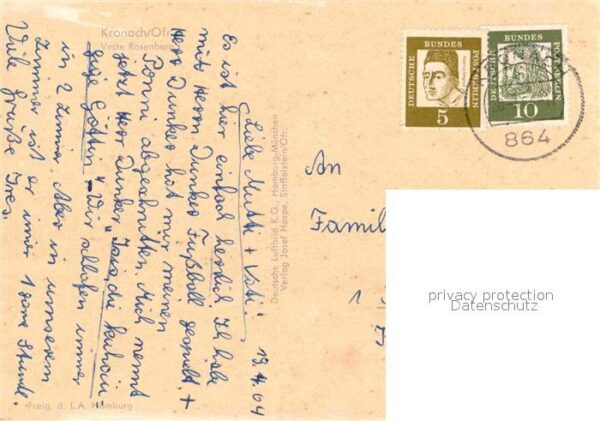 Kronach/Ofr.
Veste Rosenberg
19.4.64
Liebe Mutti + Vati!
Es ist hier einfach herrlich. Ich habe
mit Herrn Dunker Fußball gespielt. +
Herr Dunker hat mir meinen
Ponni abgeschnitten. Mich nennt
jetzt Herr Dunker „Ines die
Göttin“. Wir schlafen immer
in 2 Zimmer. Aber in unserem
Zimmer ist er immer 1 Stunde.
Viele Grüße
Ines.
Freig. d. L.A. Hamburg
Deutsche Luftbild K.G., Hamburg-München
Verlag Josef Hospe, Staffelstein-Ofr.
DEUTSCHE
BUNDES
POST BERLIN
5
DEUTSCHE
BUNDES
POST BERLIN
10
864
An
Famil
1
privacy protection
Datenschutz